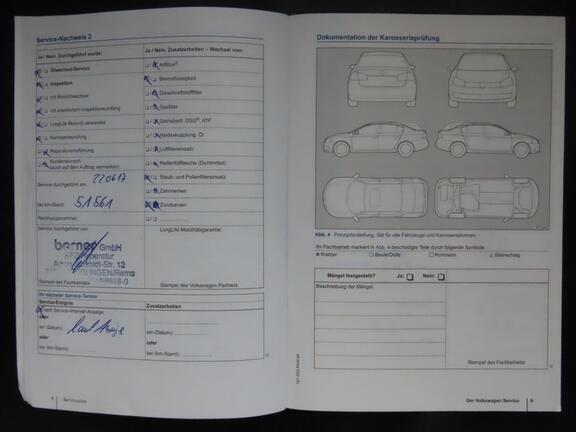 Service-Nachweis 2
Ja / Nein. Durchgeführt wurde:
Ölwechsel-Service
Inspektion
mit Motorölwechsel
mit erweitertem Inspektionsumfang
LongLife Motoröl verwendet
Karosserieprüfung
Reparaturempfehlung
Kundenwunsch
(auch auf dem Auftrag vermerken)
Service durchgeführt am: 220617
bei km-Stand: 51561
Rechnungsnummer:
Service durchgeführt von:
berner GmbH
Stempel des Fachbetriebs
Ja / Nein. Zusatzarbeiten – Wechsel von:
AdBlue®
Bremsflüssigkeit
Dieselkraftstofffilter
Gasfilter
Getriebeöl: DSG®, ATF
Haldexkupplung: Öl
Luftfiltereinsatz
Reifenfüllflasche (Dichtmittel)
Staub- und Pollenfiltereinsatz
Zahnriemen
Zündkerzen
LongLife Mobilitätsgarantie
Stempel des Volkswagen Partners
Ihr nächster Service-Termin
Service-Ereignis
laut Service-Intervall-Anzeige
oder
am (Datum)
oder
bei (km-Stand)
Zusatzarbeiten
am (Datum)
oder
bei (km-Stand)
Serviceplan
Dokumentation der Karosserieprüfung
Abb. 4 Prinzipdarstellung. Gilt für alle Fahrzeuge und Karosserieformen.
Ihr Fachbetrieb markiert in Abb. 4 beschädigte Teile durch folgende Symbole:
Kratzer
Beule/Delle
Korrosion
Steinschlag
Mängel festgestellt? Ja: Nein:
Beschreibung der Mängel:
Stempel des Fachbetriebs
Der Volkswagen Service 9